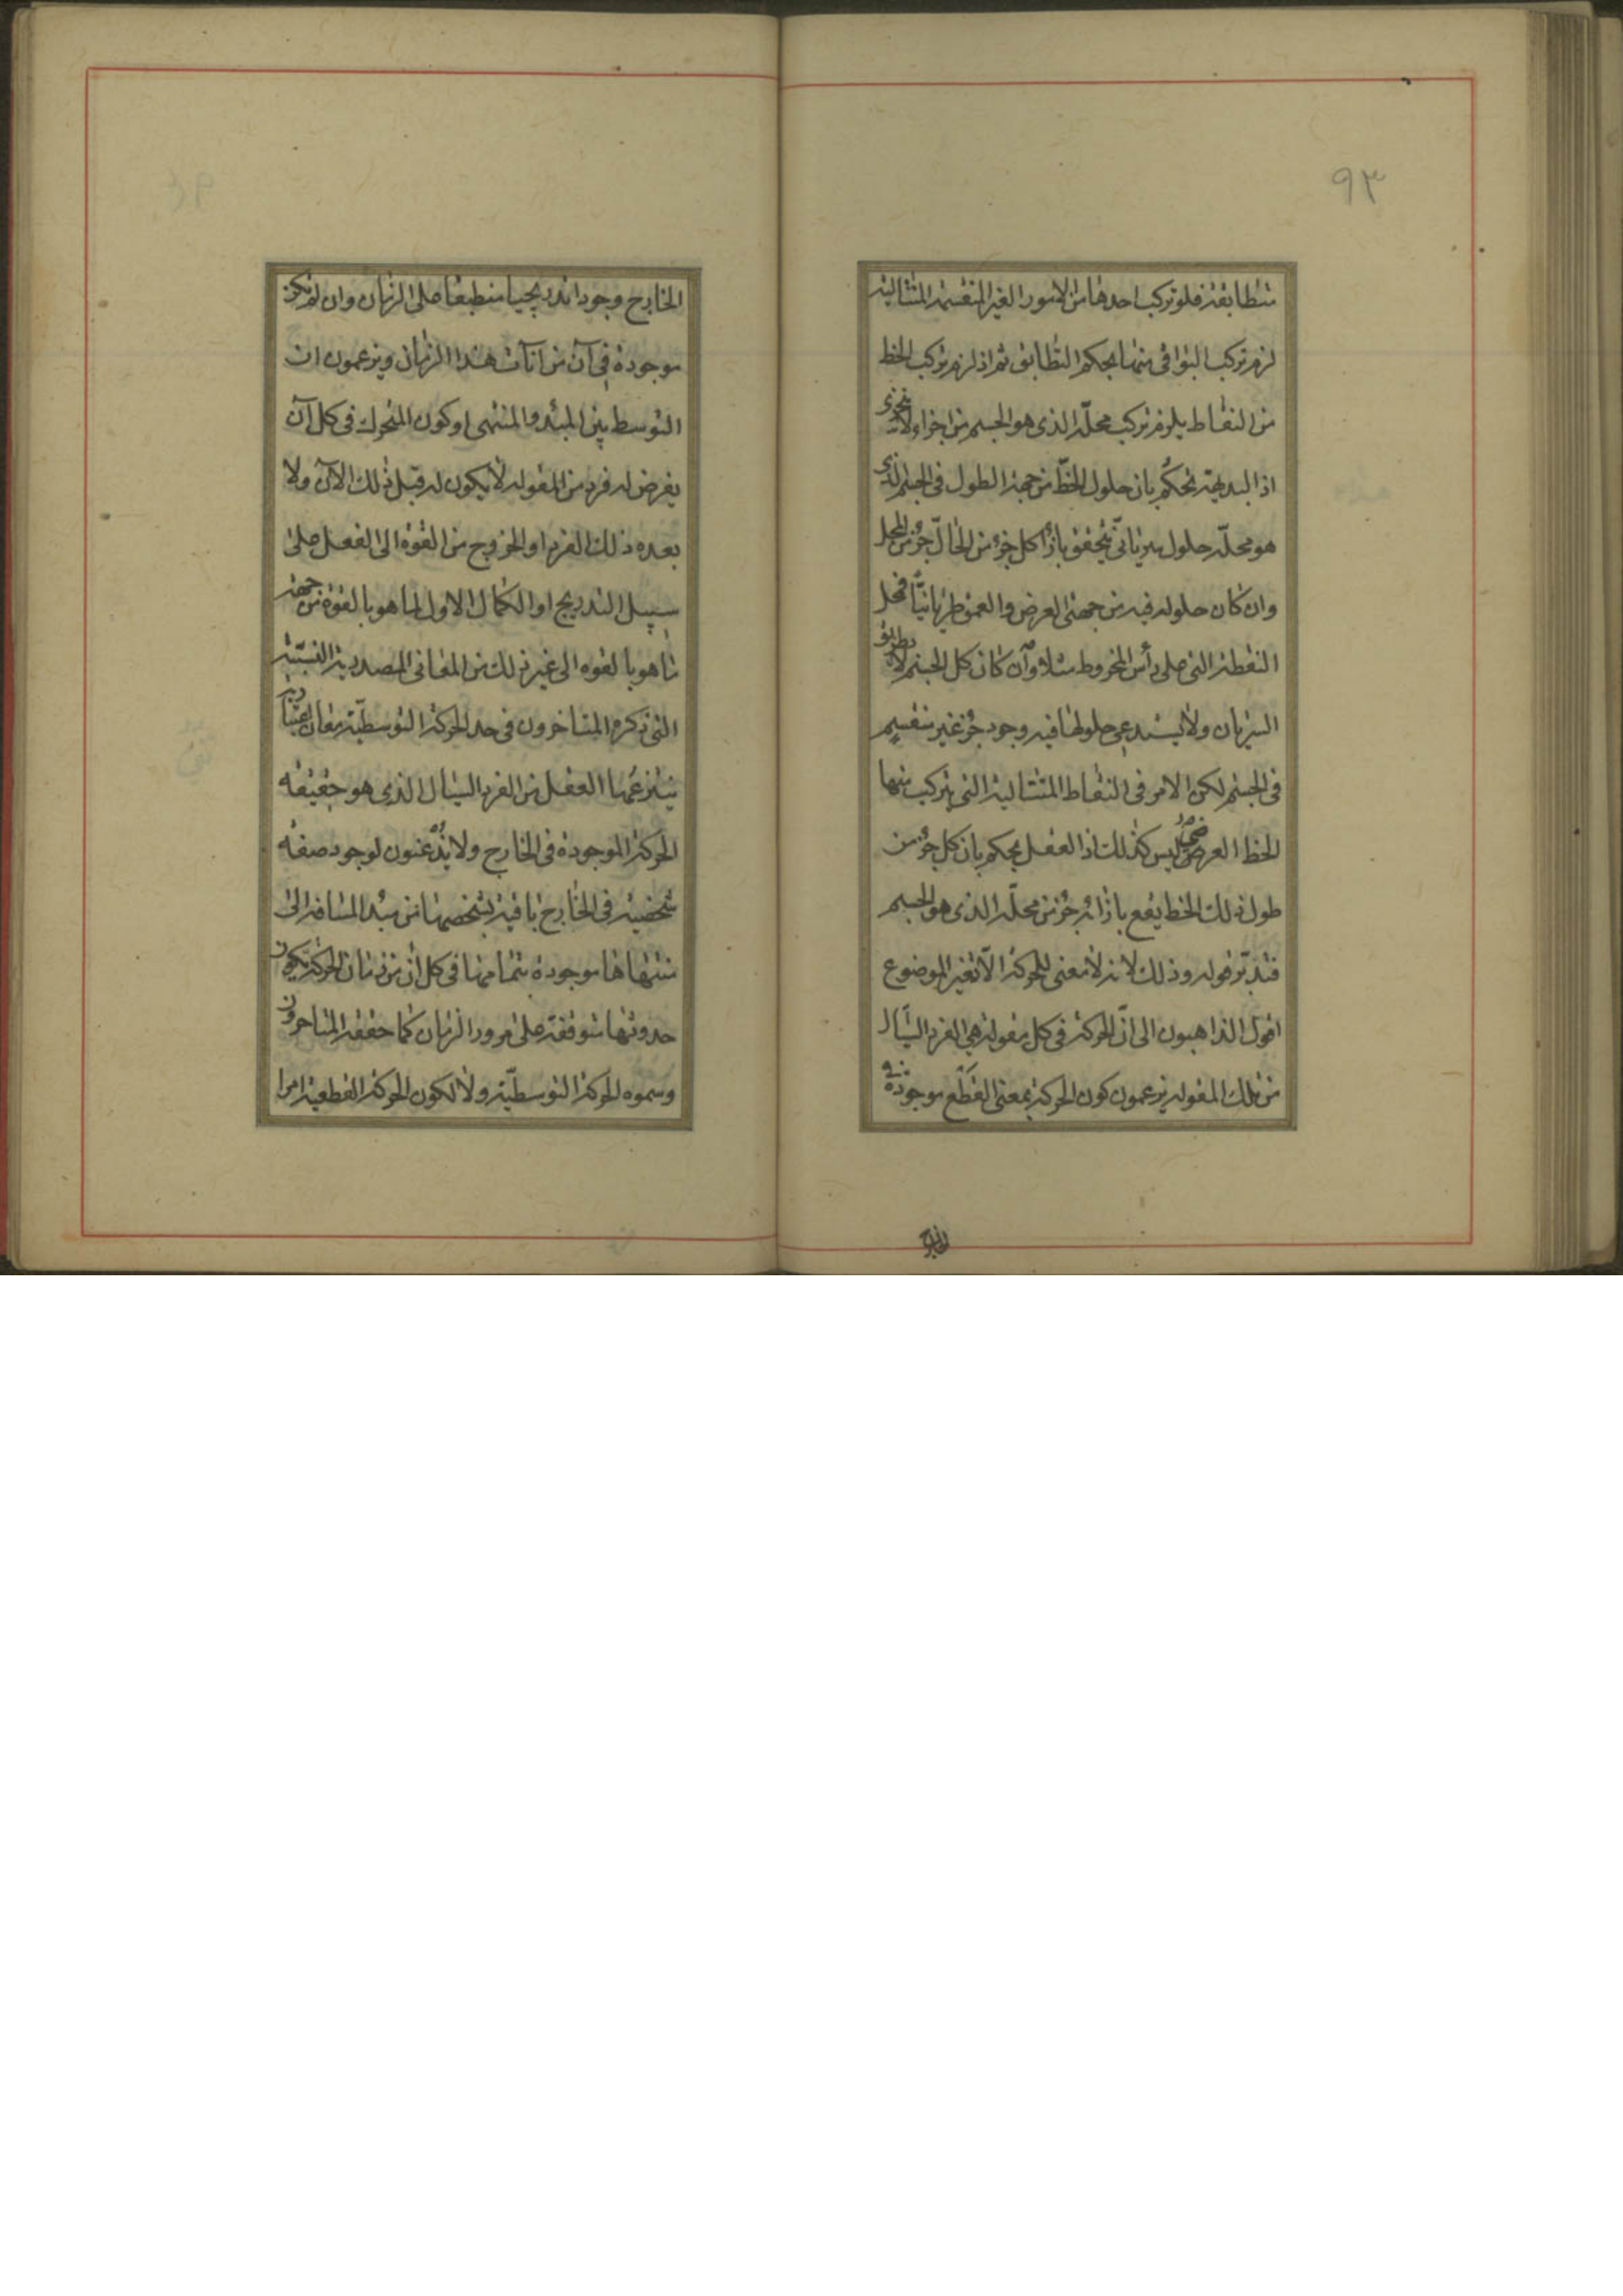 ٩٣
متطابقة فلو تركب احدها من الامور الغير المنقسمة المتتالية
لزم تركب البواقى منها بحكم التطابق ثم اذ لزم تركب الخط
من النقاط يلزم تركب محله الذى هو الجسم من اجزاء لا تتجزى
اذ البديهة تحكم بان حلول الخطّ من جهة الطول فى الجسم الذى
هو محلّه حلول سريانىّ يتحقق بازاء كل جزء من الحالّ جزء من المحل
وان كان حلوله فيه من جهتى العرض والعمق طريانيّا فمحل
النقطة التى على رأس المخروط مثلا وان كان كل الجسم لا بطريق
السريان ولا يستدعى حلولها فيه وجود جزء غير منقسم
فى الجسم لكن الامر فى النقاط المتتالية التى يتركب منها
الخط العرضى ليس كذلك اذ العقل يحكم بان كل جزء من
طول ذلك الخط يقع بازائه جزء من محلّه الذى هو الجسم
فتدبّر قوله وذلك لانه لا معنى للحركة الّا تغير الموضوع
اقول الذاهبون الى انّ الحركة فى كل مقولة هى الفرد السيّال
من تلك المقولة يزعمون كون الحركة بمعنى القطع موجودة فى
الخارج وجودا تدريجيا منطبقا على الزمان وان لم تكن
موجودة فى آن من آنات هذا الزمان ويزعمون ان
التوسط بين المبدء والمنتهى او كون المتحرك فى كل آن
يفرض له فرد من المقولة لا يكون له قبل ذلك الآن ولا
بعده ذلك الفرد او الخروج من القوة الى الفعل على
سبيل التدريج او الكمال الاول لما هو بالقوة من جهة
ما هو بالقوه الى غير ذلك من المعانى المصدرية النسبية
التى ذكره المتاخرون فى حد الحركة التوسطيّة معان اعتبارية
ينتزعها العقل من الفرد السيال الذى هو حقيقه
الحركة الموجودة فى الخارج ولا يذعنون لوجود صفه
شخصية فى الخارج باقية بشخصها من مبدء المسافة الى
منتهاها موجودة بتمامها فى كل آن من زمان الحركة يكون
حدوثها متوقفة على مرور الزمان كما حققه المتاخرون
وسموه الحركة التوسطيّة ولا لكون الحركة القطعية امرا